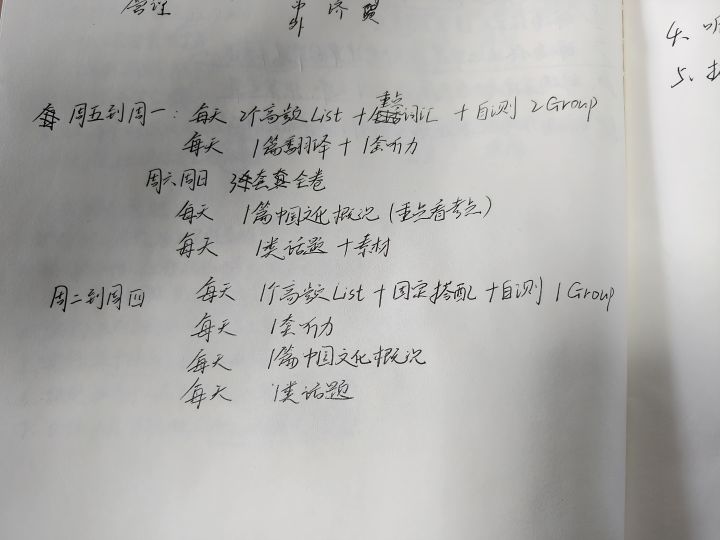 管理
中 济 贸
外
4、听
5、
周五到周一: 每天 2个高频List + 重点词汇 + 自测 2Group
每天 1篇翻译 + 1套听力
周六周日 3套真全卷
每天 1篇中国文化概况 (重点看考点)
每天 1类话题 + 素材
周二到周四 每天 1个高频List + 固定搭配 + 自测 1Group
每天 1套听力
每天 1篇中国文化概况
每天 1类话题